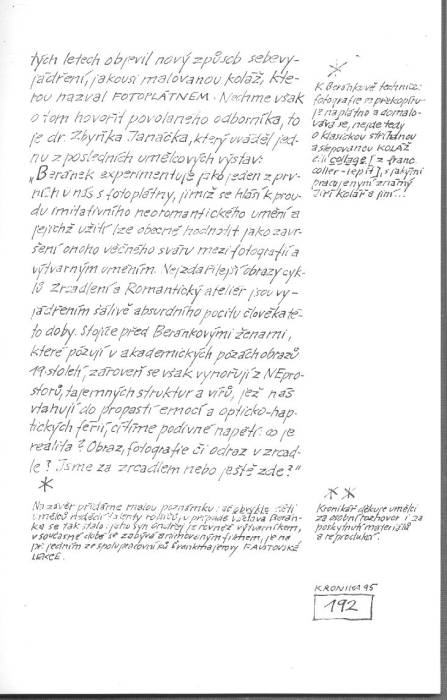 tých letech objevil nový způsob sebevy-
jádření, jakousi malovanou koláž, kte-
rou nazval FOTOPLÁTNEM. Nechme však
o tom hovořit povolaného odborníka, to
je dr. Zbyňka Janáčka, který uváděl jed-
nu z posledních umělcových výstav:
„Beránek experimentuje jako jeden z prv-
ních u nás s fotoplátny, jimiž se hlásí k prou-
du imitativního neoromantického umění a
jejichž užití lze obecně hodnotit jako završ-
šení onoho věčného sváru mezi fotografií a
výtvarným uměním. Nejzdařilejší obrazy cyk-
lů Zrcadlení a Romantický ateliér jsou vy-
jádřením šálivě absurdního pocitu člověka té-
to doby. Stojíte před Beránkovými ženami,
které pózují v akademických pózách obrazů
19. století, zároveň se však vynořují z NEpro-
storů, tajemných struktur a vírů, jež nás
vtahují do propasti emocí a opticko-hap-
tických férií, cítíme podivné napětí: co je
realita? Obraz, fotografie či odraz v zrcad-
le? Jsme za zrcadlem nebo ještě zde?"
*
Na závěr přidáme malou poznámku: ač obvykle děti
umělců nedědí talenty rodičů, v případě Václava Berán-
ka se tak stalo: jeho syn Ondřej je rovněž výtvarníkem,
v současné době se zabývá animovaným filmem, je na
př. jedním ze spolupracovníků Švankmajerovy FAUSTOVSKÉ
LEKCE.
*
K Beránkově technice:
fotografie se překopíru-
je na plátno a domalo-
vává se, nejde tedy
o klasickou stříhanou
a slepovanou KOLÁŽ
čili collage [z franc.
coller-lepit], s jakými
pracoval nyní známý
Jiří Kolář a jiní..!
**
Kronikář děkuje umělci
za osobní rozhovor i za
poskytnutí materiálů
a reprodukcí.
KRONIKA 95
192